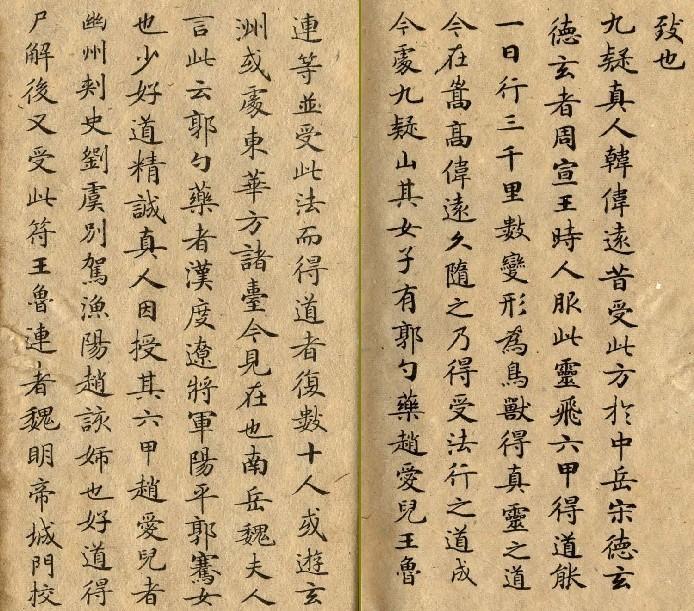 致也
九疑真人韓偉遠昔受此方於中岳宋德玄
德玄者周宣王時人服此靈飛六甲得道能
一日行三千里數變形為鳥獸得真靈之道
今在嵩高偉遠久隨之乃得受法行之道成
今處九疑山其女子有郭勺藥趙愛兒王魯
連等並受此法而得道者復數十人或遊玄
洲或處東華方諸臺今見在也南岳魏夫人
言此云郭勺藥者漢度遼將軍陽平郭騫女
也少好道精誠真人因授其六甲趙愛兒者
幽州刺史劉虞別駕漁陽趙該姉也好道得
尸解後又受此符王魯連者魏明帝城門校